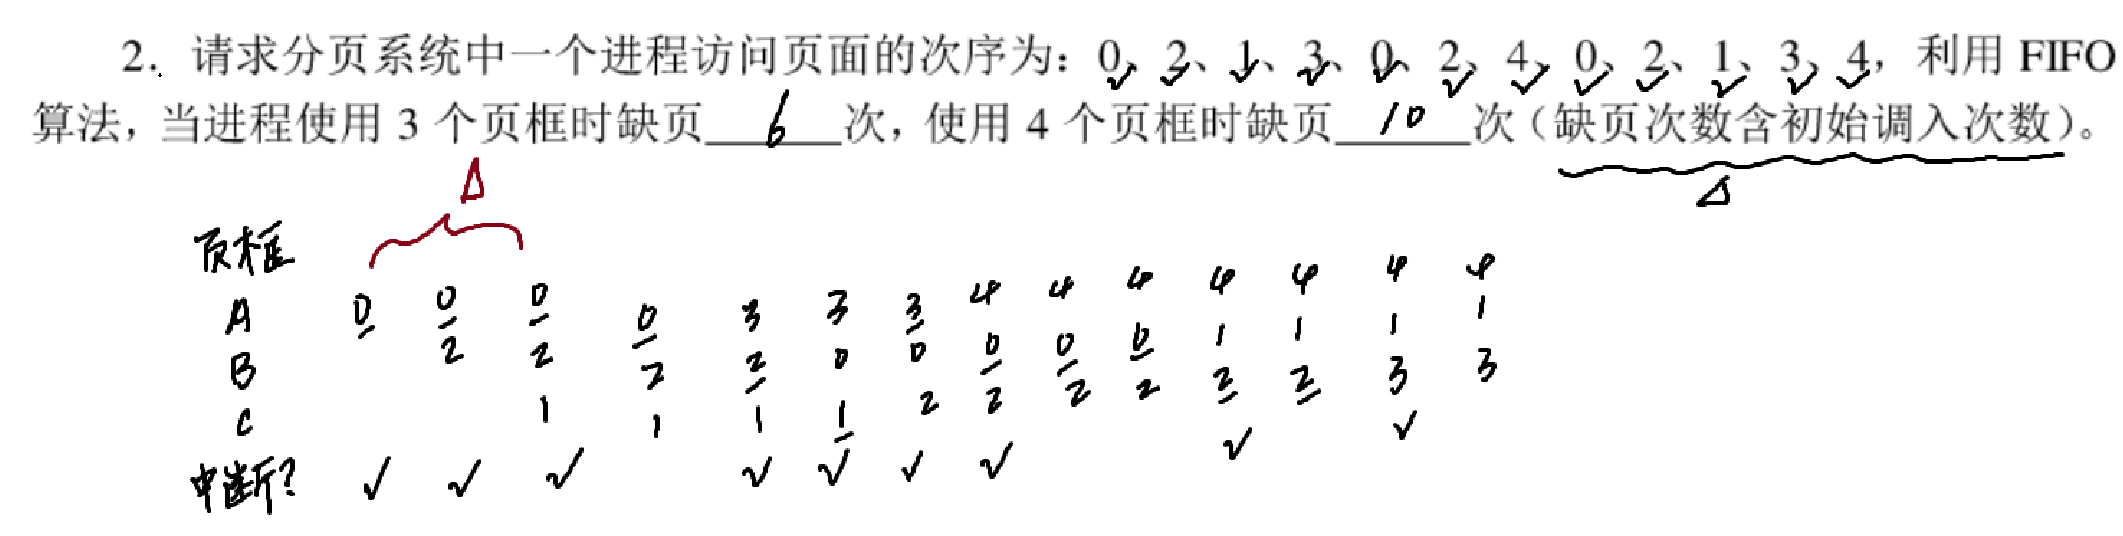 2. 请求分页系统中一个进程访问页面的次序为：0、2、1、3、0、2、4、0、2、1、3、4，利用 FIFO
算法，当进程使用 3 个页框时缺页 6 次，使用 4 个页框时缺页 10 次（缺页次数含初始调入次数）。
Δ Δ
页框
A 0 0 0 0 3 3 3 4 4 4 4 4 4 4
B 2 2 2 2 0 0 0 0 0 1 1 1 1
C 1 1 1 1 2 2 2 2 2 2 3 3
中断? ✓ ✓ ✓ ✓ ✓ ✓ ✓ ✓ ✓